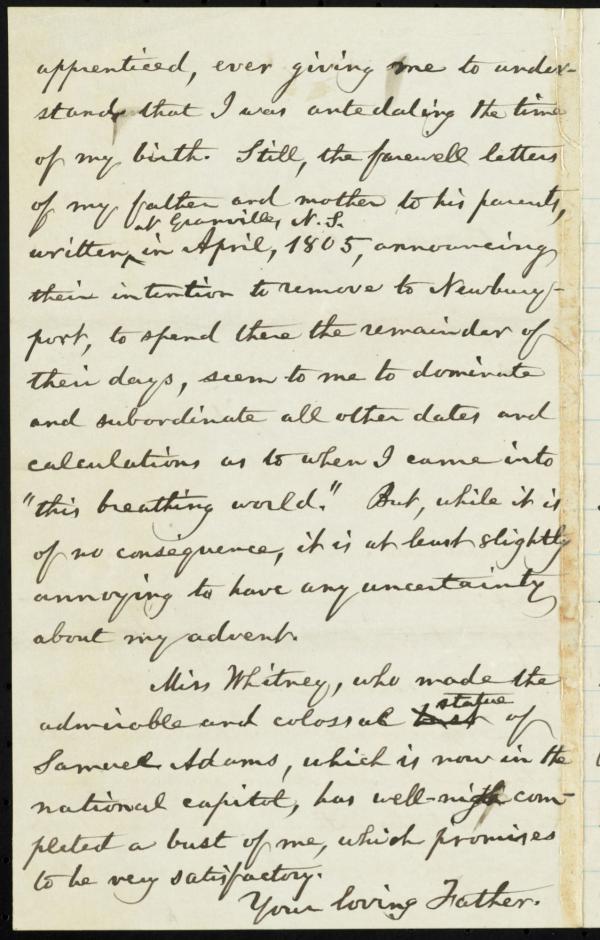 apprenticed, ever giving me to under-
stand, that I was antedating the time
of my birth. Still, the farewell letters
of my father and mother to his parents,
at Granville, N. S.
written, in April, 1805, announcing
their intention to remove to Newbury-
port, to spend there the remainder of
their days, seem to me to dominate
and subordinate all other dates and
calculations as to when I came into
"this breathing world." But, while it is
of no consequence, it is at least slightly
annoying to have any uncertainty
about my advent.
Miss Whitney, who made the
statue
admirable and colossal bust of
Samuel Adams, which is now in the
national capitol, has well-nigh com-
pleted a bust of me, which promises
to be very satisfactory.
Your loving Father.